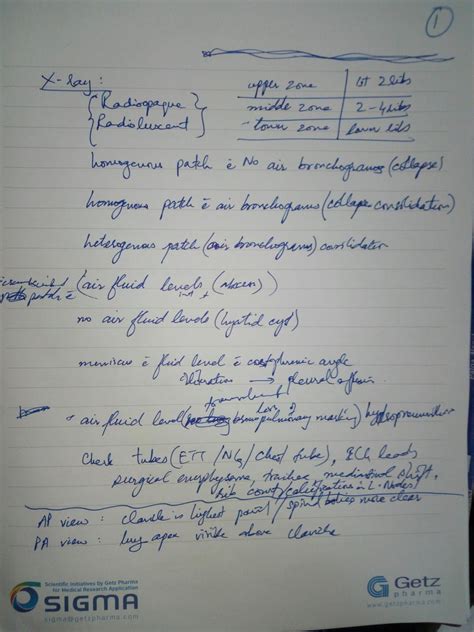 1
X-Ray:
{Radiopaque}
{Radioluscent}
upper zone | 1st 2 ribs
middle zone | 2-4 ribs
lower zone | lower ribs
homogenous patch c̄ No air bronchograms (collapse)
homogenous patch c̄ air bronchograms (collapse consolidation)
heterogenous patch (air bronchograms) consolidation
patch c̄ (air fluid levels (Abscess)
no air fluid levels (hyatid cyst)
meniscus c̄ fluid level c̄ costophrenic angle
obliteration → pleural effusion
air fluid level bronchopulmonary marking) hydropneumothorax
Check tubes (ETT / NG / Chest tube), ECG leads
surgical emphysema, trachea, mediastinal shift,
rib count / calcifications in L. Nodes
AP view : clavicle is highest point / spinal bodies more clear
PA view : lung apex visible above clavicle
Scientific Initiatives by Getz Pharma
for Medical Research Application
SIGMA
sigma@getzpharma.com
Getz
pharma
www.getzpharma.com